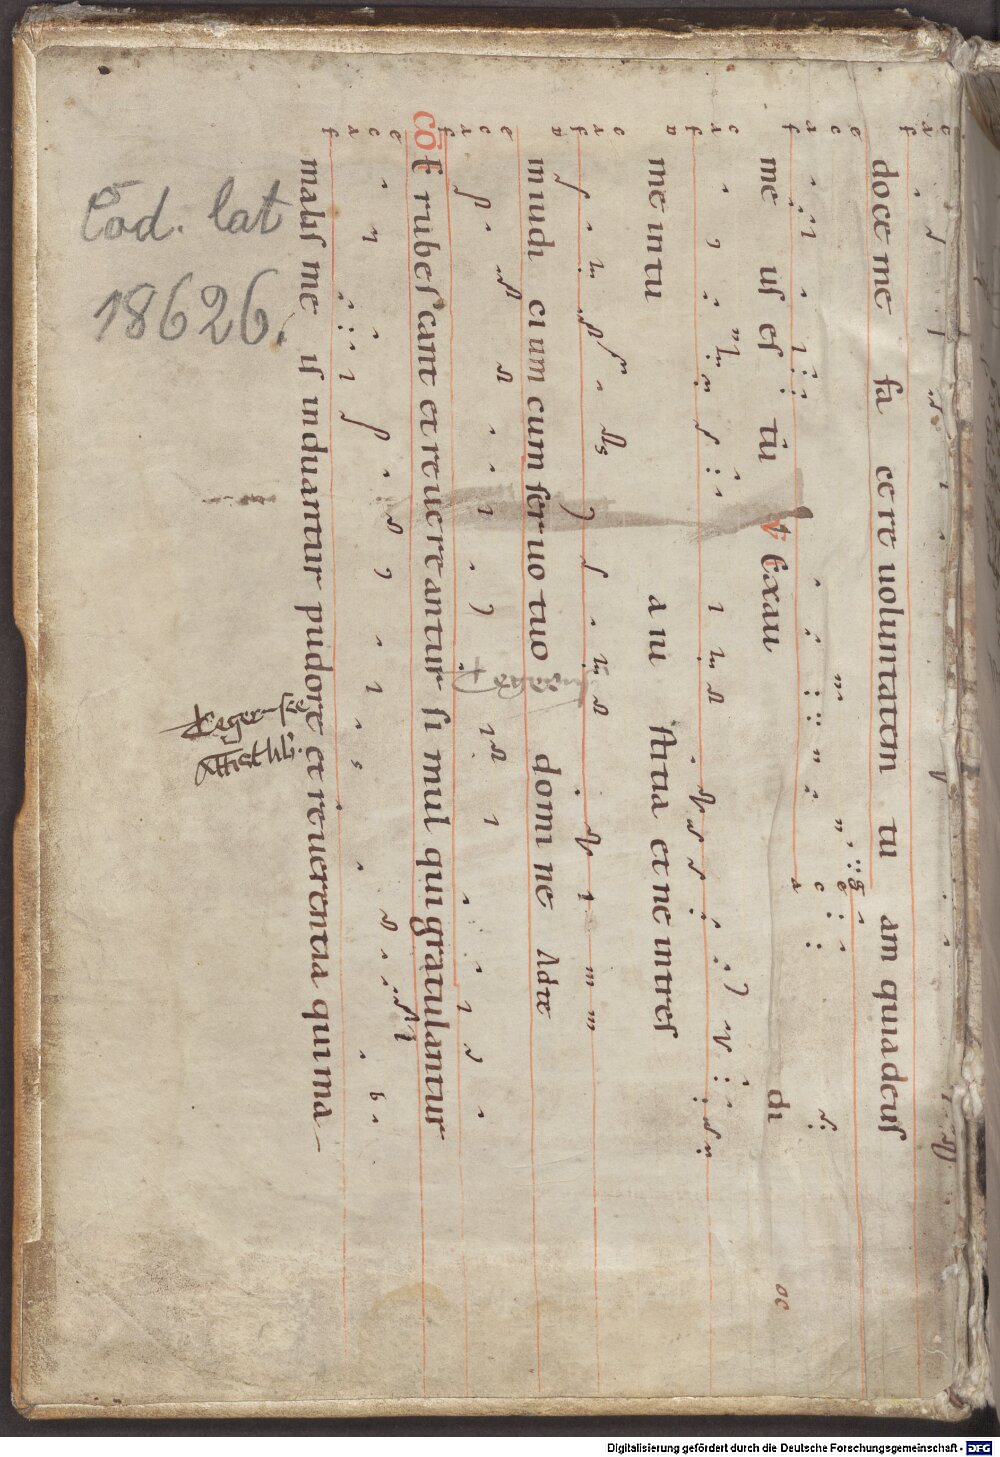 doce me fa cere uoluntatem tu am quia deus
me us es tu ℣ Exau di
me in tu a ni stitia et ne intres
in iudi ci um cum seruo tuo domi ne Adte
cō E rubescant et reuereantur si mul qui gratulantur
malis me is induantur pudore et reuerentia qui ma-
Cod. lat
18626.
Digitalisierung gefördert durch die Deutsche Forschungsgemeinschaft - DFG